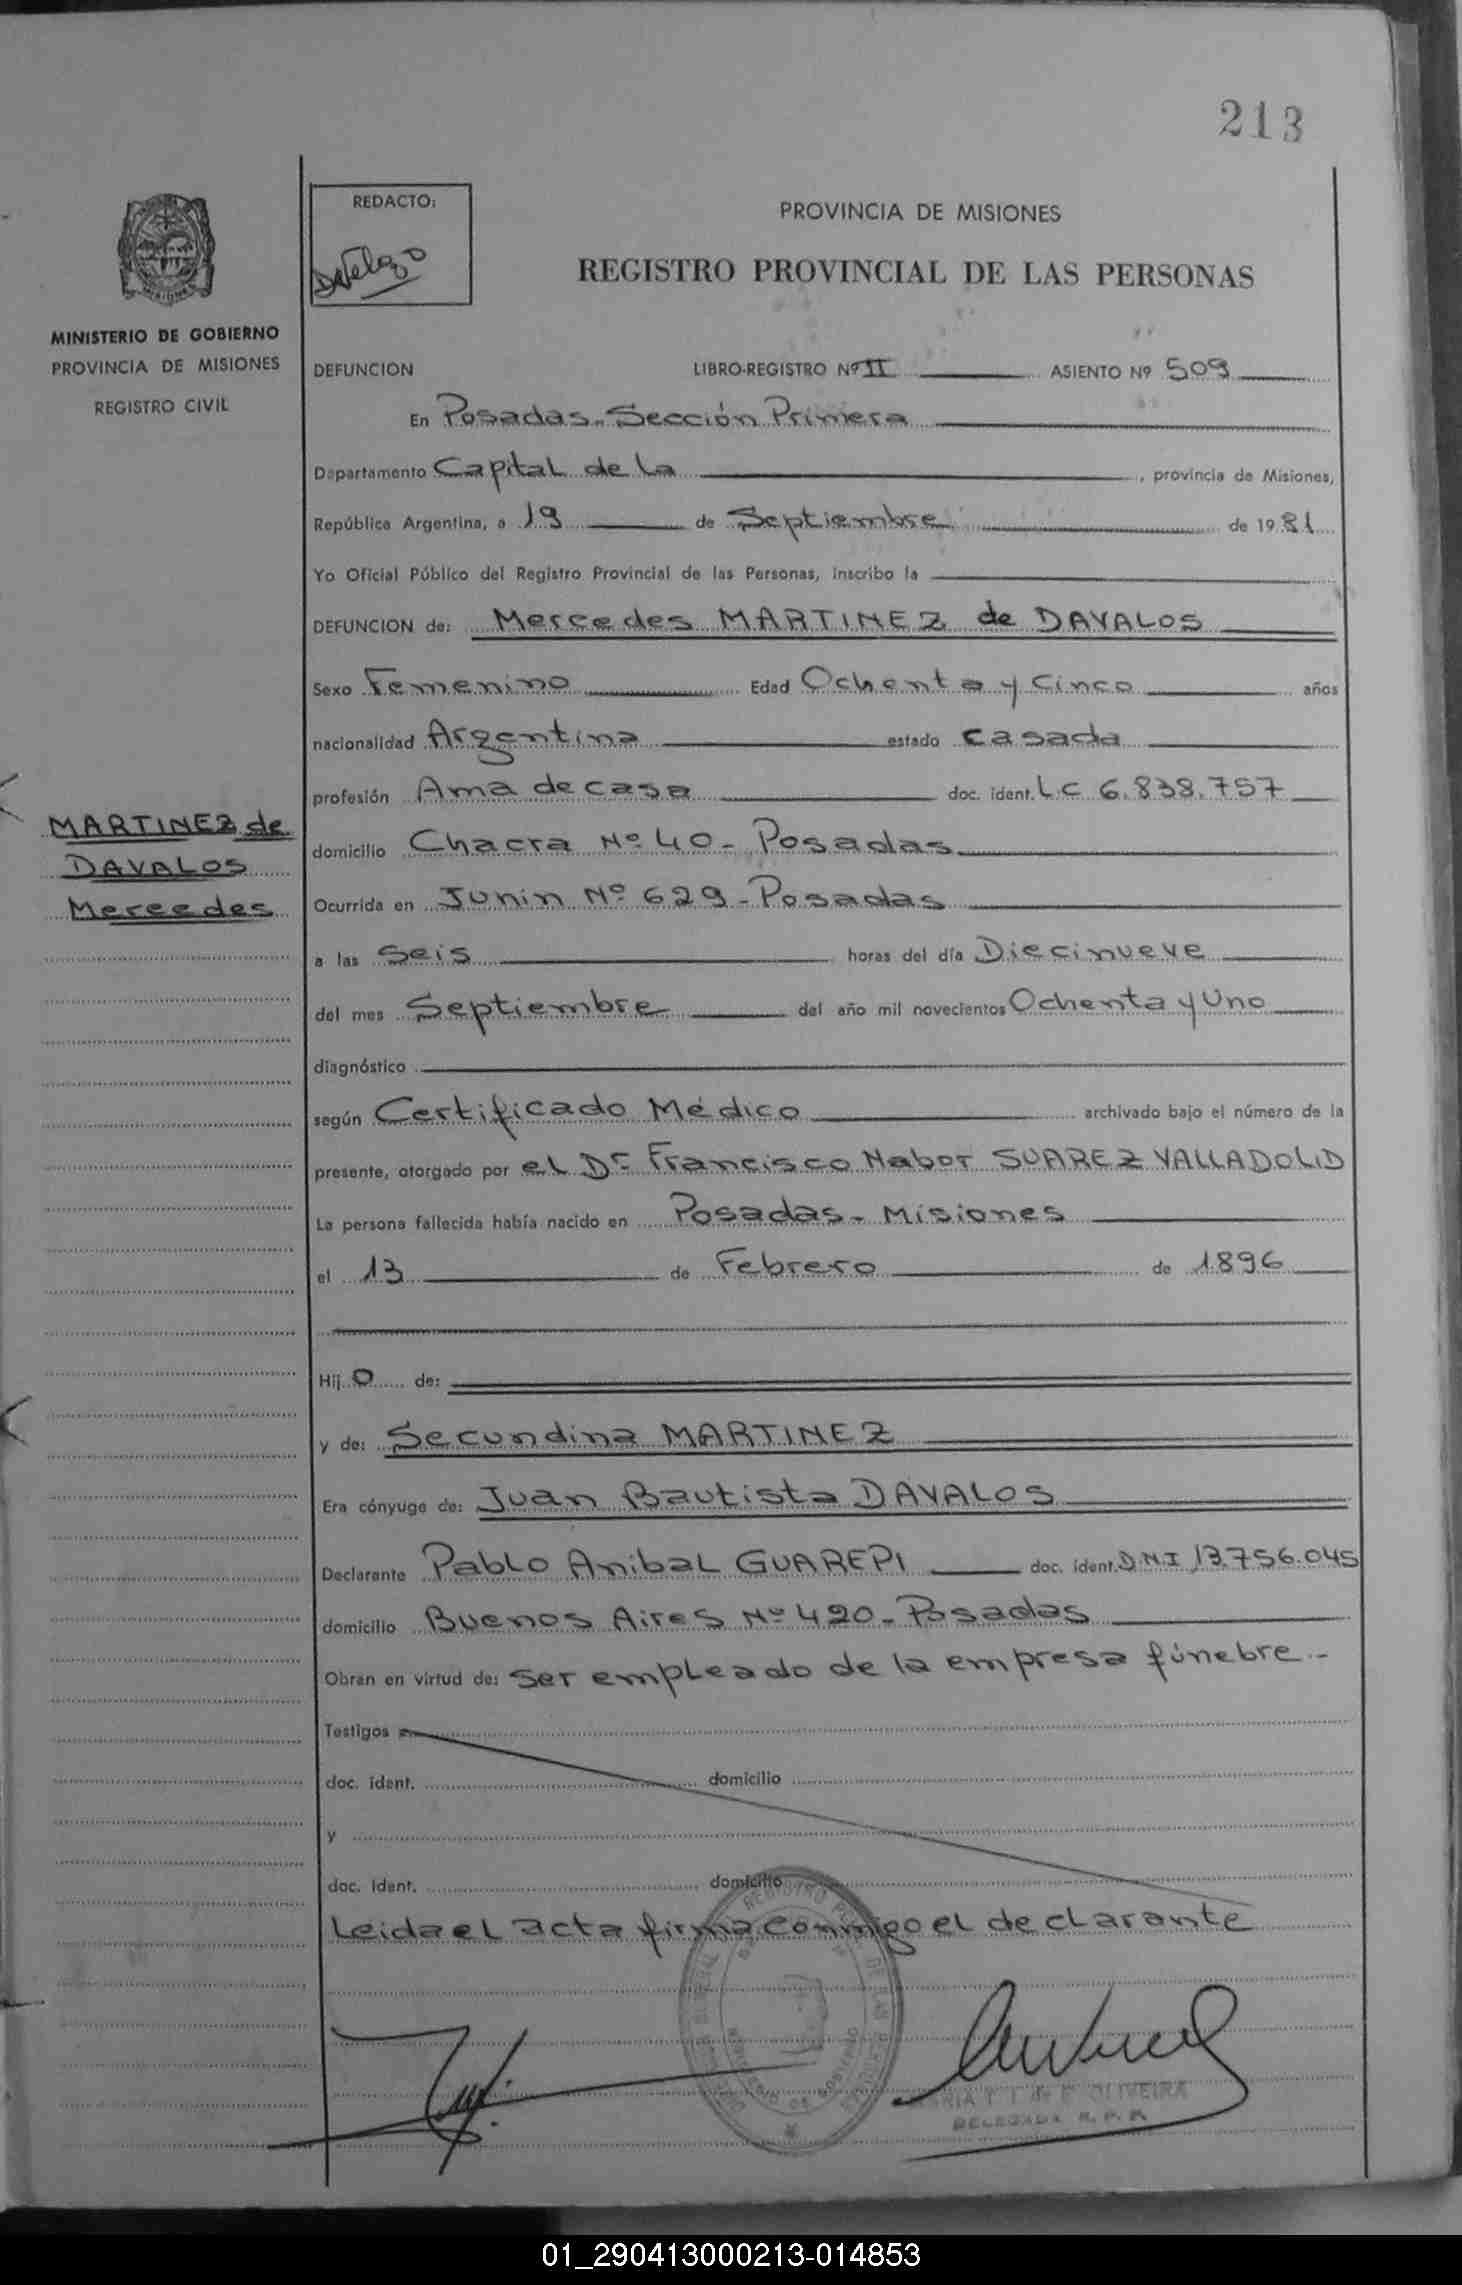 213
REDACTO:
PROVINCIA DE MISIONES
REGISTRO PROVINCIAL DE LAS PERSONAS
MINISTERIO DE GOBIERNO
PROVINCIA DE MISIONES
REGISTRO CIVIL
DEFUNCION LIBRO-REGISTRO Nº II ASIENTO Nº 509
En Posadas-Sección Primera
Departamento Capital de la , provincia de Misiones,
República Argentina, a 19 de Septiembre de 1981
Yo Oficial Público del Registro Provincial de las Personas, inscribo la
DEFUNCION de: Mercedes MARTINEZ de DAVALOS
Sexo Femenino Edad Ochenta y Cinco años
nacionalidad Argentina estado casada
profesión Ama de casa doc. ident. LC 6.838.757
MARTINEZ de
DAVALOS
Mercedes
domicilio Chacra Nº 40 - Posadas
Ocurrida en Junin Nº 629 - Posadas
a las Seis horas del día Diecinueve
del mes Septiembre del año mil novecientos Ochenta y Uno
diagnóstico
según Certificado Médico archivado bajo el número de la
presente, otorgado por el Dr Francisco Nabor SUAREZ VALLADOLID
La persona fallecida había nacido en Posadas - Misiones
el 13 de Febrero de 1896
Hij o de:
y de: Secundina MARTINEZ
Era cónyuge de: Juan Bautista DAVALOS
Declarante Pablo Anibal GUAREPI doc. ident. D.N.I 13.756.045
domicilio Buenos Aires Nº 420 - Posadas
Obran en virtud de: ser empleado de la empresa fúnebre.-
Testigos
doc. ident. domicilio
y
doc. ident. domicilio
Leida el acta firma conmigo el declarante
OLIVEIRA
DELEGADA R. P. P.
01_290413000213-014853